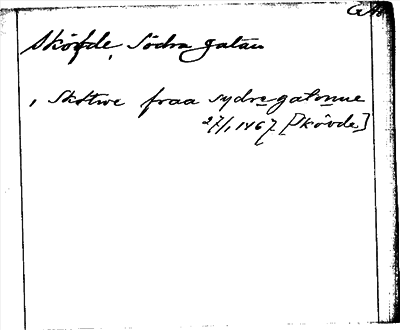 Skövde, Södra gatan
, Skötwe fraa sydregatonne
27/1 1467 [Skövde]